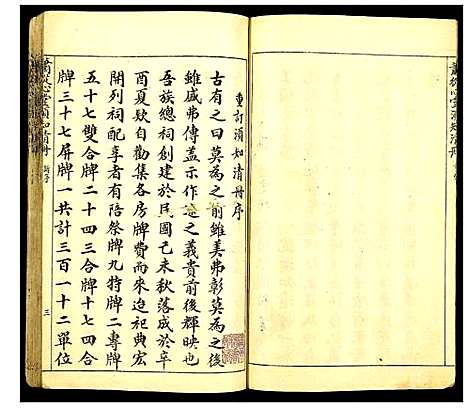 重訂須知清冊序
古有之曰莫為之前雖美弗彰莫為之後
雖盛弗傳蓋示作述之義貴前後輝映也
吾族總祠創建於民國己未秋落成於辛
酉夏欵自勸集各房牌費而來迨祀典宏
開列祠配享者有陪祭牌九特牌二專牌
五十七雙合牌二十四三合牌十七四合
牌三十七屏牌一共計三百一十二單位
蕭從心堂須知清冊
新序
三
蕭從心堂須知清冊